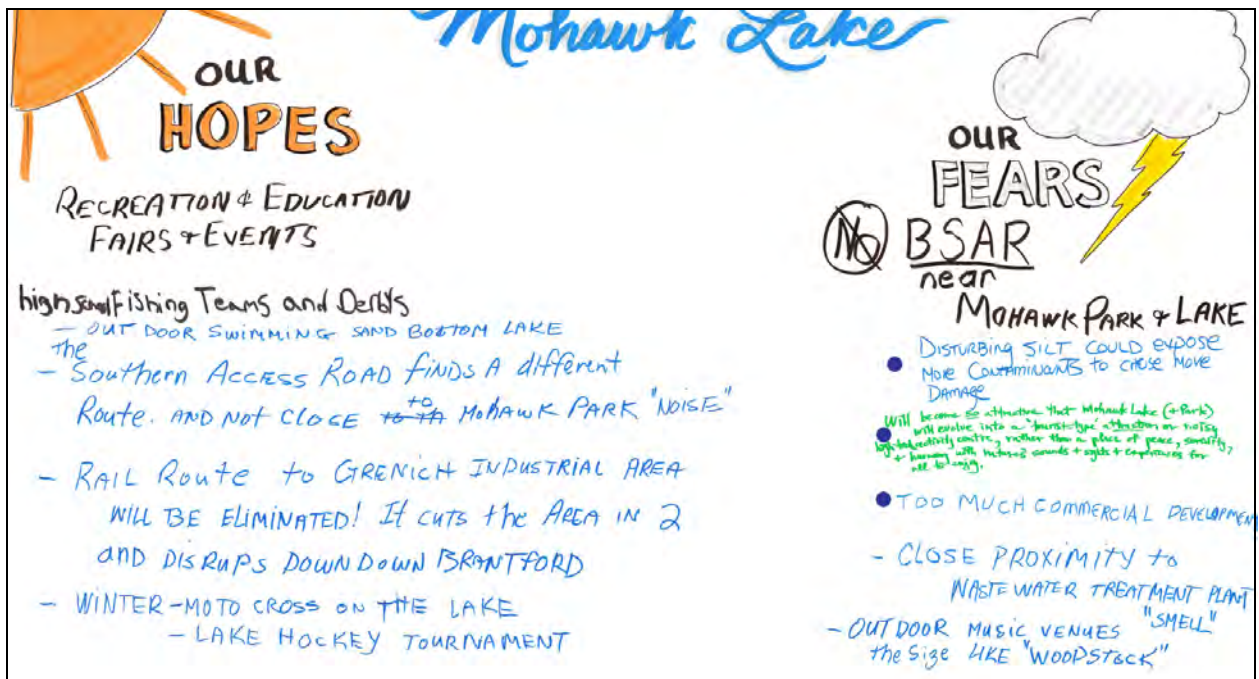 Mohawk Lake
OUR
HOPES
RECREATION & EDUCATION
FAIRS & EVENTS
high school Fishing Teams and Derbys
- OUT DOOR SWIMMING SAND BOTTOM LAKE
the
- Southern ACCESS ROAD FINDS A different
Route. AND NOT CLOSE to MOHAWK PARK "NOISE"
- RAIL ROUTE to GRENICH INDUSTRIAL AREA
WILL BE ELIMINATED! It CUTS the AREA IN 2
and DISRUPS DOWN DOWN BRANTFORD
- WINTER-MOTO CROSS ON THE LAKE
- LAKE HOCKEY TOURNAMENT
OUR
FEARS
NO BSAR
near
MOHAWK PARK & LAKE
DISTURBING SILT COULD EXPOSE
MORE CONTAMINANTS to CAUSE MORE
DAMAGE
Will become so attractive that Mohawk Lake (+ Park)
will evolve into a "tourist-type" attraction or noisy
activity centre, rather than a place of peace, serenity,
+ harmony with natural sounds + sights + experiences for
all to enjoy.
TOO MUCH COMMERCIAL DEVELOPMENT
- CLOSE PROXIMITY to
WASTE WATER TREATMENT PLANT
"SMELL"
- OUTDOOR MUSIC VENUES
the Size LIKE "WOODSTOCK"